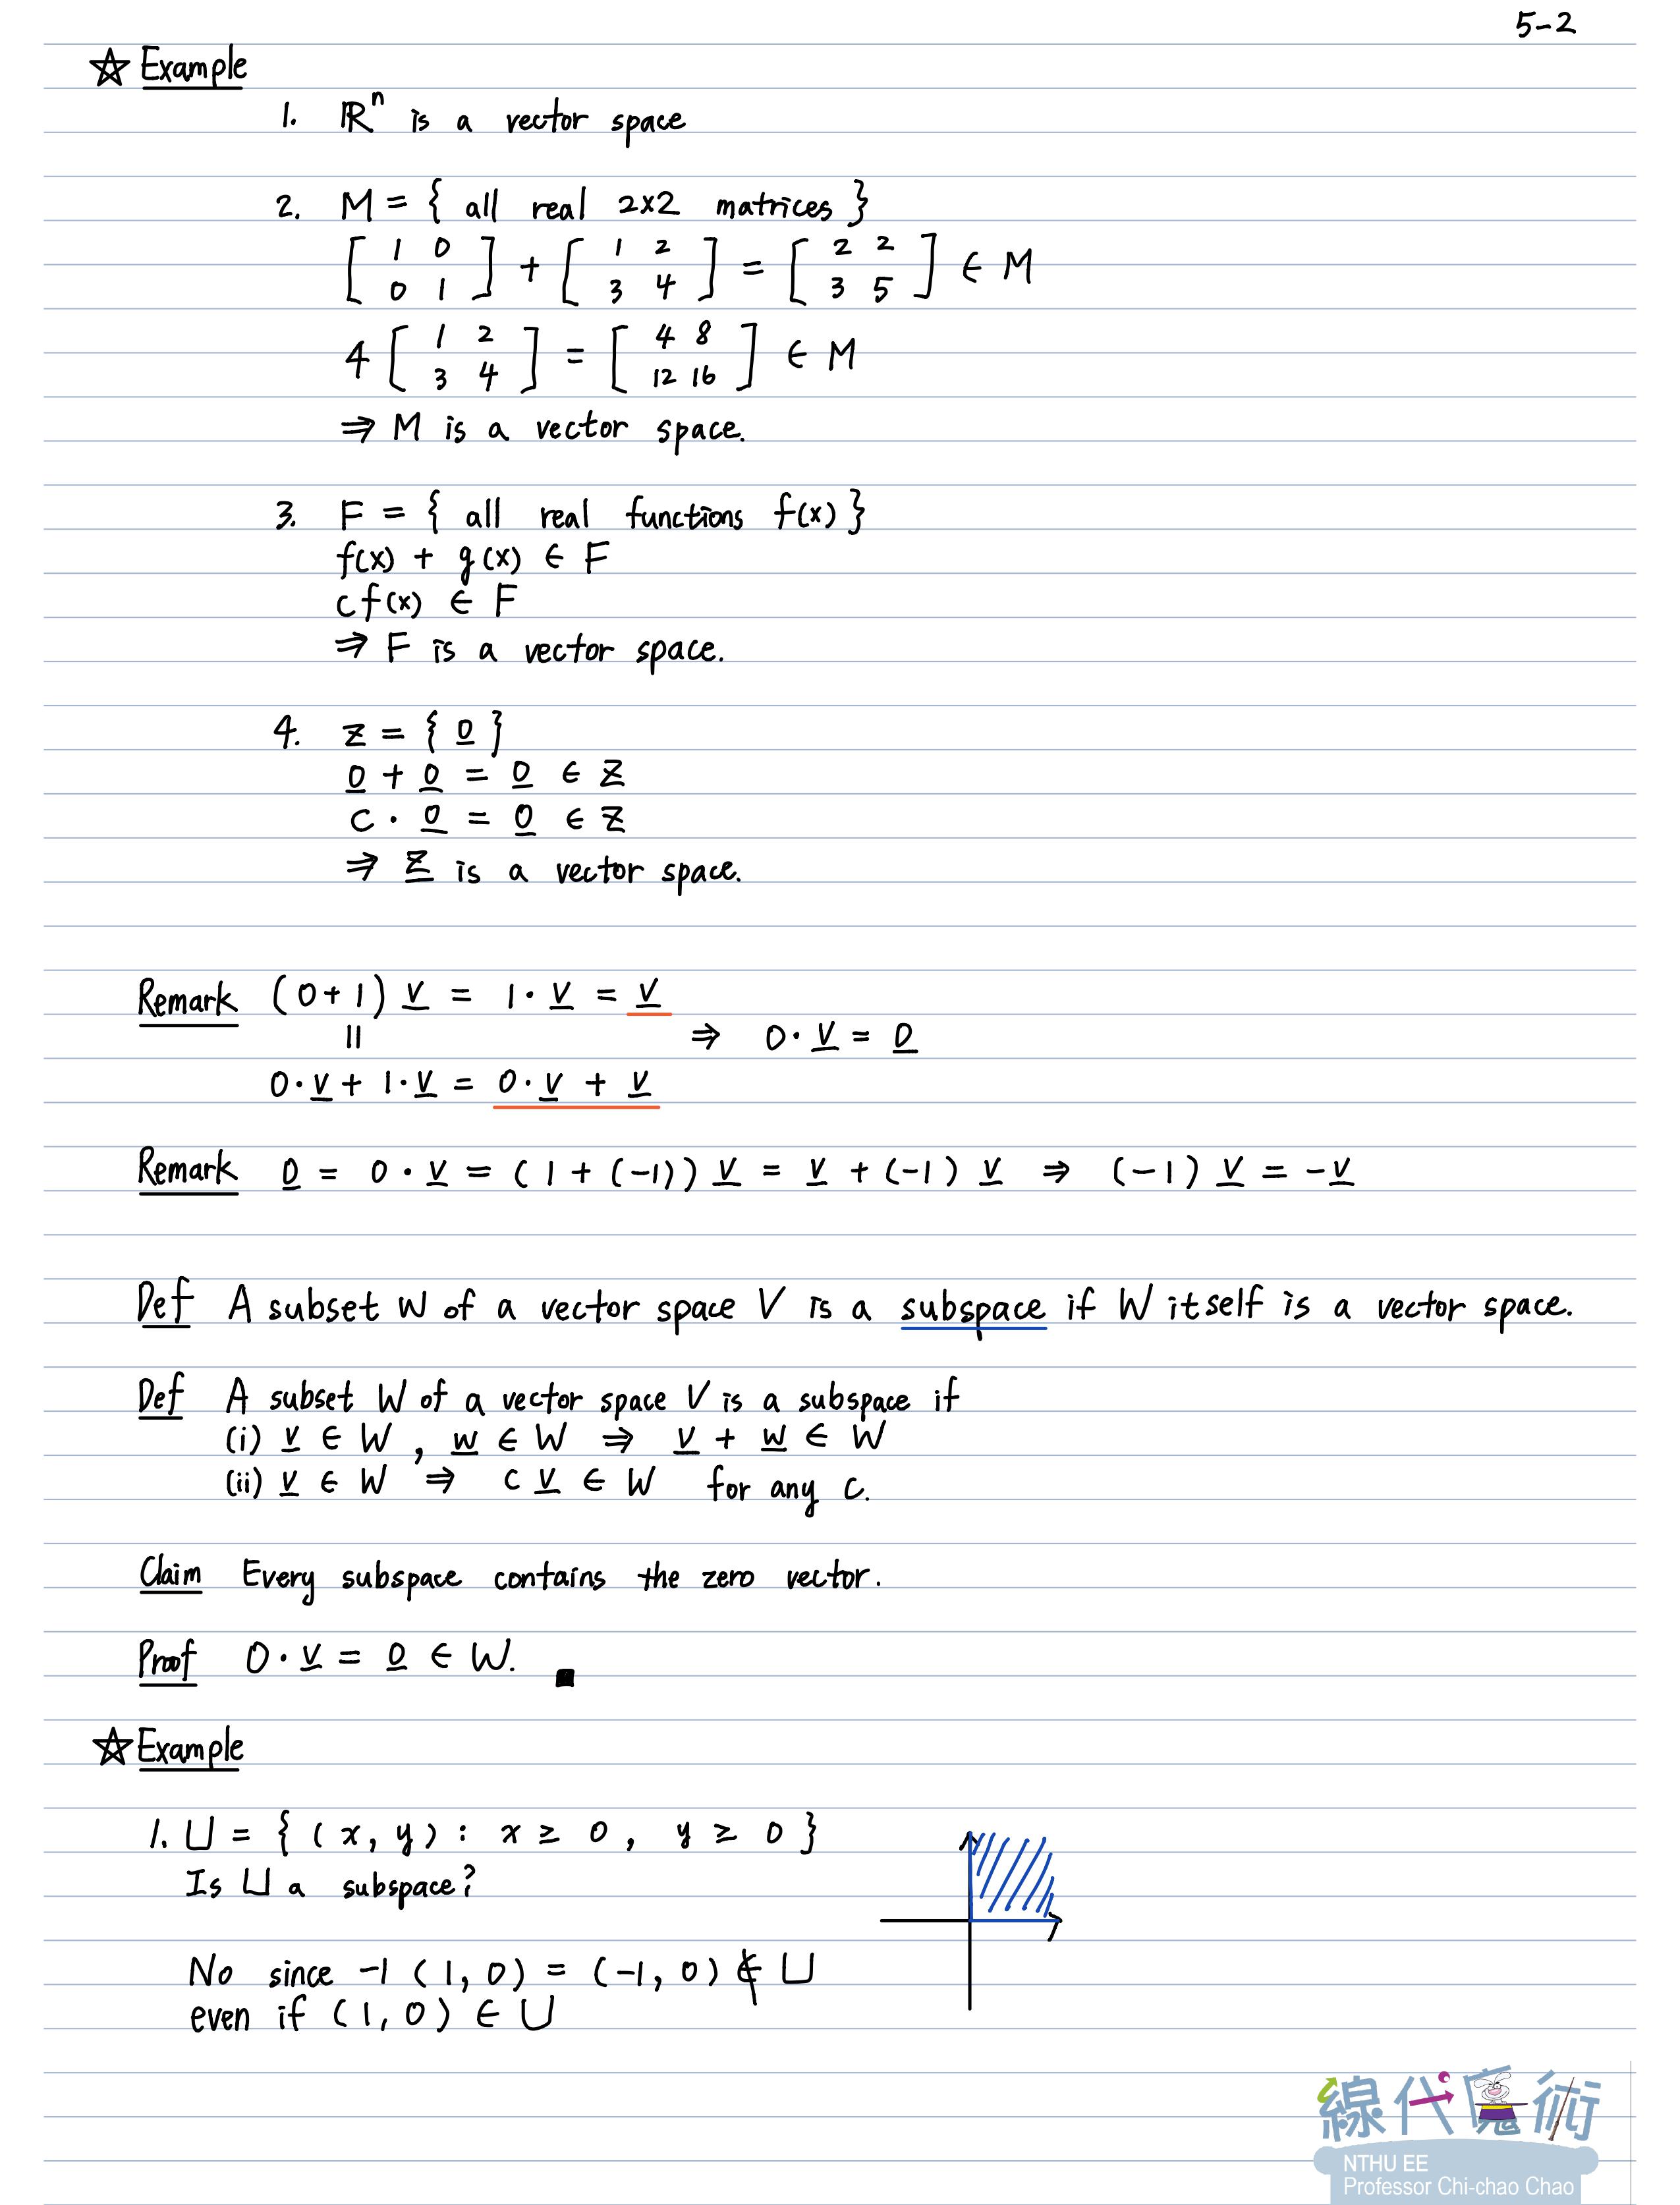 5-2
☆ Example
1. ℝⁿ is a vector space
2. M = { all real 2×2 matrices }
[ 1 0 ; 0 1 ] + [ 1 2 ; 3 4 ] = [ 2 2 ; 3 5 ] ∈ M
4 [ 1 2 ; 3 4 ] = [ 4 8 ; 12 16 ] ∈ M
⇒ M is a vector space.
3. F = { all real functions f(x) }
f(x) + g(x) ∈ F
c f(x) ∈ F
⇒ F is a vector space.
4. Z = { 0 }
0 + 0 = 0 ∈ Z
c · 0 = 0 ∈ Z
⇒ Z is a vector space.
Remark (0+1) v = 1 · v = v
|| ⇒ 0 · v = 0
0 · v + 1 · v = 0 · v + v
Remark 0 = 0 · v = (1 + (-1)) v = v + (-1) v ⇒ (-1) v = -v
Def A subset W of a vector space V is a subspace if W itself is a vector space.
Def A subset W of a vector space V is a subspace if
(i) v ∈ W , w ∈ W ⇒ v + w ∈ W
(ii) v ∈ W ⇒ c v ∈ W for any c.
Claim Every subspace contains the zero vector.
Proof 0 · v = 0 ∈ W. ■
☆ Example
1. U = { (x, y) : x ≥ 0, y ≥ 0 }
Is U a subspace?
No since -1 (1, 0) = (-1, 0) ∉ U
even if (1, 0) ∈ U
線代魔術
NTHU EE
Professor Chi-chao Chao